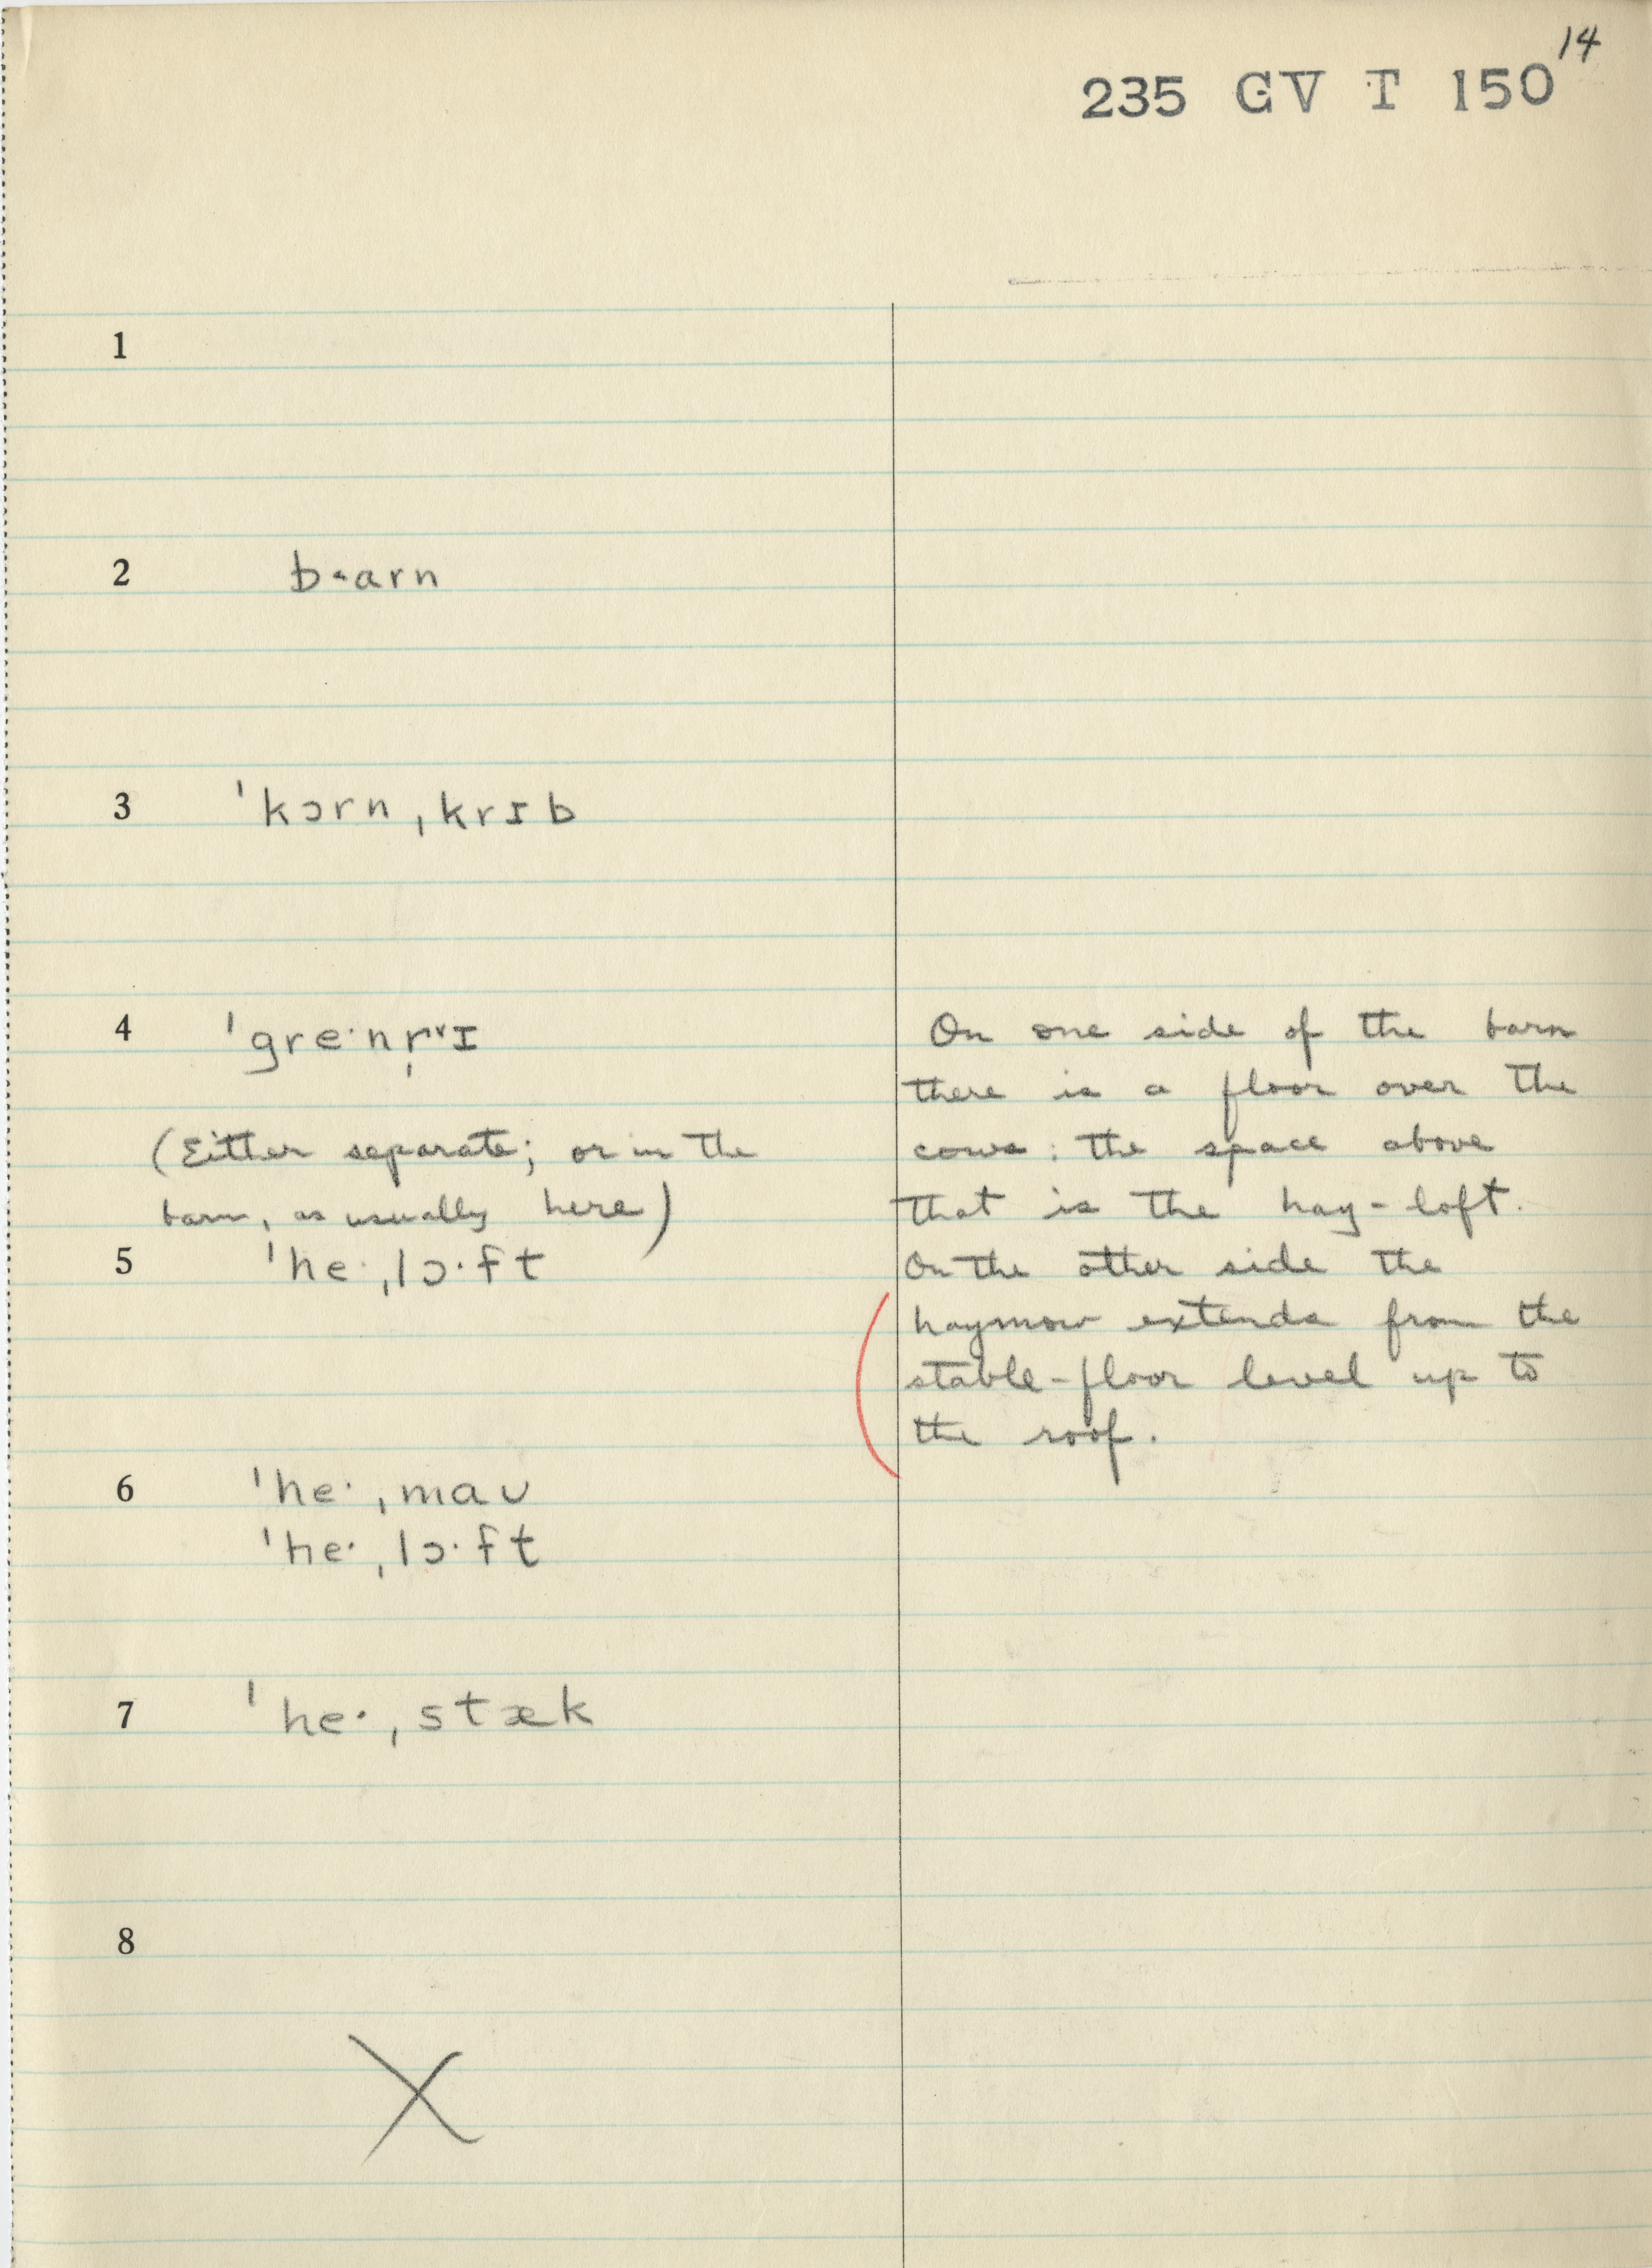 14
235 GV T 150
1
2 b˔arn
3 ˈkɔrnˌkrɪb
4 ˈgre·nr̩ɪ
(Either separate; or in the
barn, as usually here)
5 ˈhe·ˌlɔ·ft
6 ˈhe·ˌmaʊ
ˈhe·ˌlɔ·ft
7 ˈhe·ˌstæk
8
X
On one side of the barn
there is a floor over the
cows: the space above
that is the hay-loft.
On the other side the
haymow extends from the
stable-floor level up to
the roof.